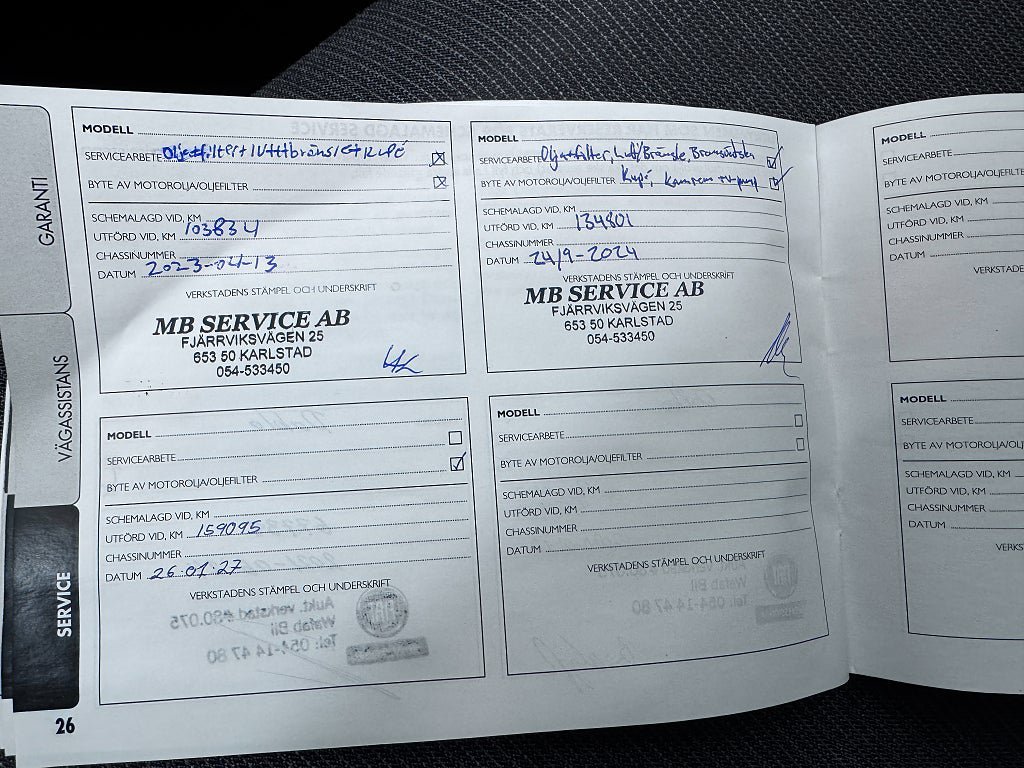 GARANTI
VÄGASSISTANS
SERVICE
26
MODELL
SERVICEARBETE
BYTE AV MOTOROLJA/OLJEFILTER
SCHEMALAGD VID, KM
UTFÖRD VID, KM 103834
CHASSINUMMER
DATUM 2023-04-13
VERKSTADENS STÄMPEL OCH UNDERSKRIFT
MB SERVICE AB
FJÄRRVIKSVÄGEN 25
653 50 KARLSTAD
054-533450
MODELL
SERVICEARBETE Olja+filter, Luft/Bränsle, Bromsvätska
BYTE AV MOTOROLJA/OLJEFILTER Kupé, Kamrem
SCHEMALAGD VID, KM
UTFÖRD VID, KM 134801
CHASSINUMMER
DATUM 24/9-2024
VERKSTADENS STÄMPEL OCH UNDERSKRIFT
MB SERVICE AB
FJÄRRVIKSVÄGEN 25
653 50 KARLSTAD
054-533450
MODELL
SERVICEARBETE
BYTE AV MOTOROLJA/OLJEFILTER
SCHEMALAGD VID, KM
UTFÖRD VID, KM 159095
CHASSINUMMER
DATUM 26.01.27
VERKSTADENS STÄMPEL OCH UNDERSKRIFT
Aukt. verkstad #80.075
Wafab Bil
Tel: 054-14 47 80
MODELL
SERVICEARBETE
BYTE AV MOTOROLJA/OLJEFILTER
SCHEMALAGD VID, KM
UTFÖRD VID, KM
CHASSINUMMER
DATUM
VERKSTADENS STÄMPEL OCH UNDERSKRIFT
MODELL
SERVICEARBETE
BYTE AV MOTOROLJA/OLJEF
SCHEMALAGD VID, KM
UTFÖRD VID, KM
CHASSINUMMER
DATUM
VERKSTADE
MODELL
SERVICEARBETE
BYTE AV MOTOROLJA/OLJEF
SCHEMALAGD VID, KM
UTFÖRD VID, KM
CHASSINUMMER
DATUM
VERKS